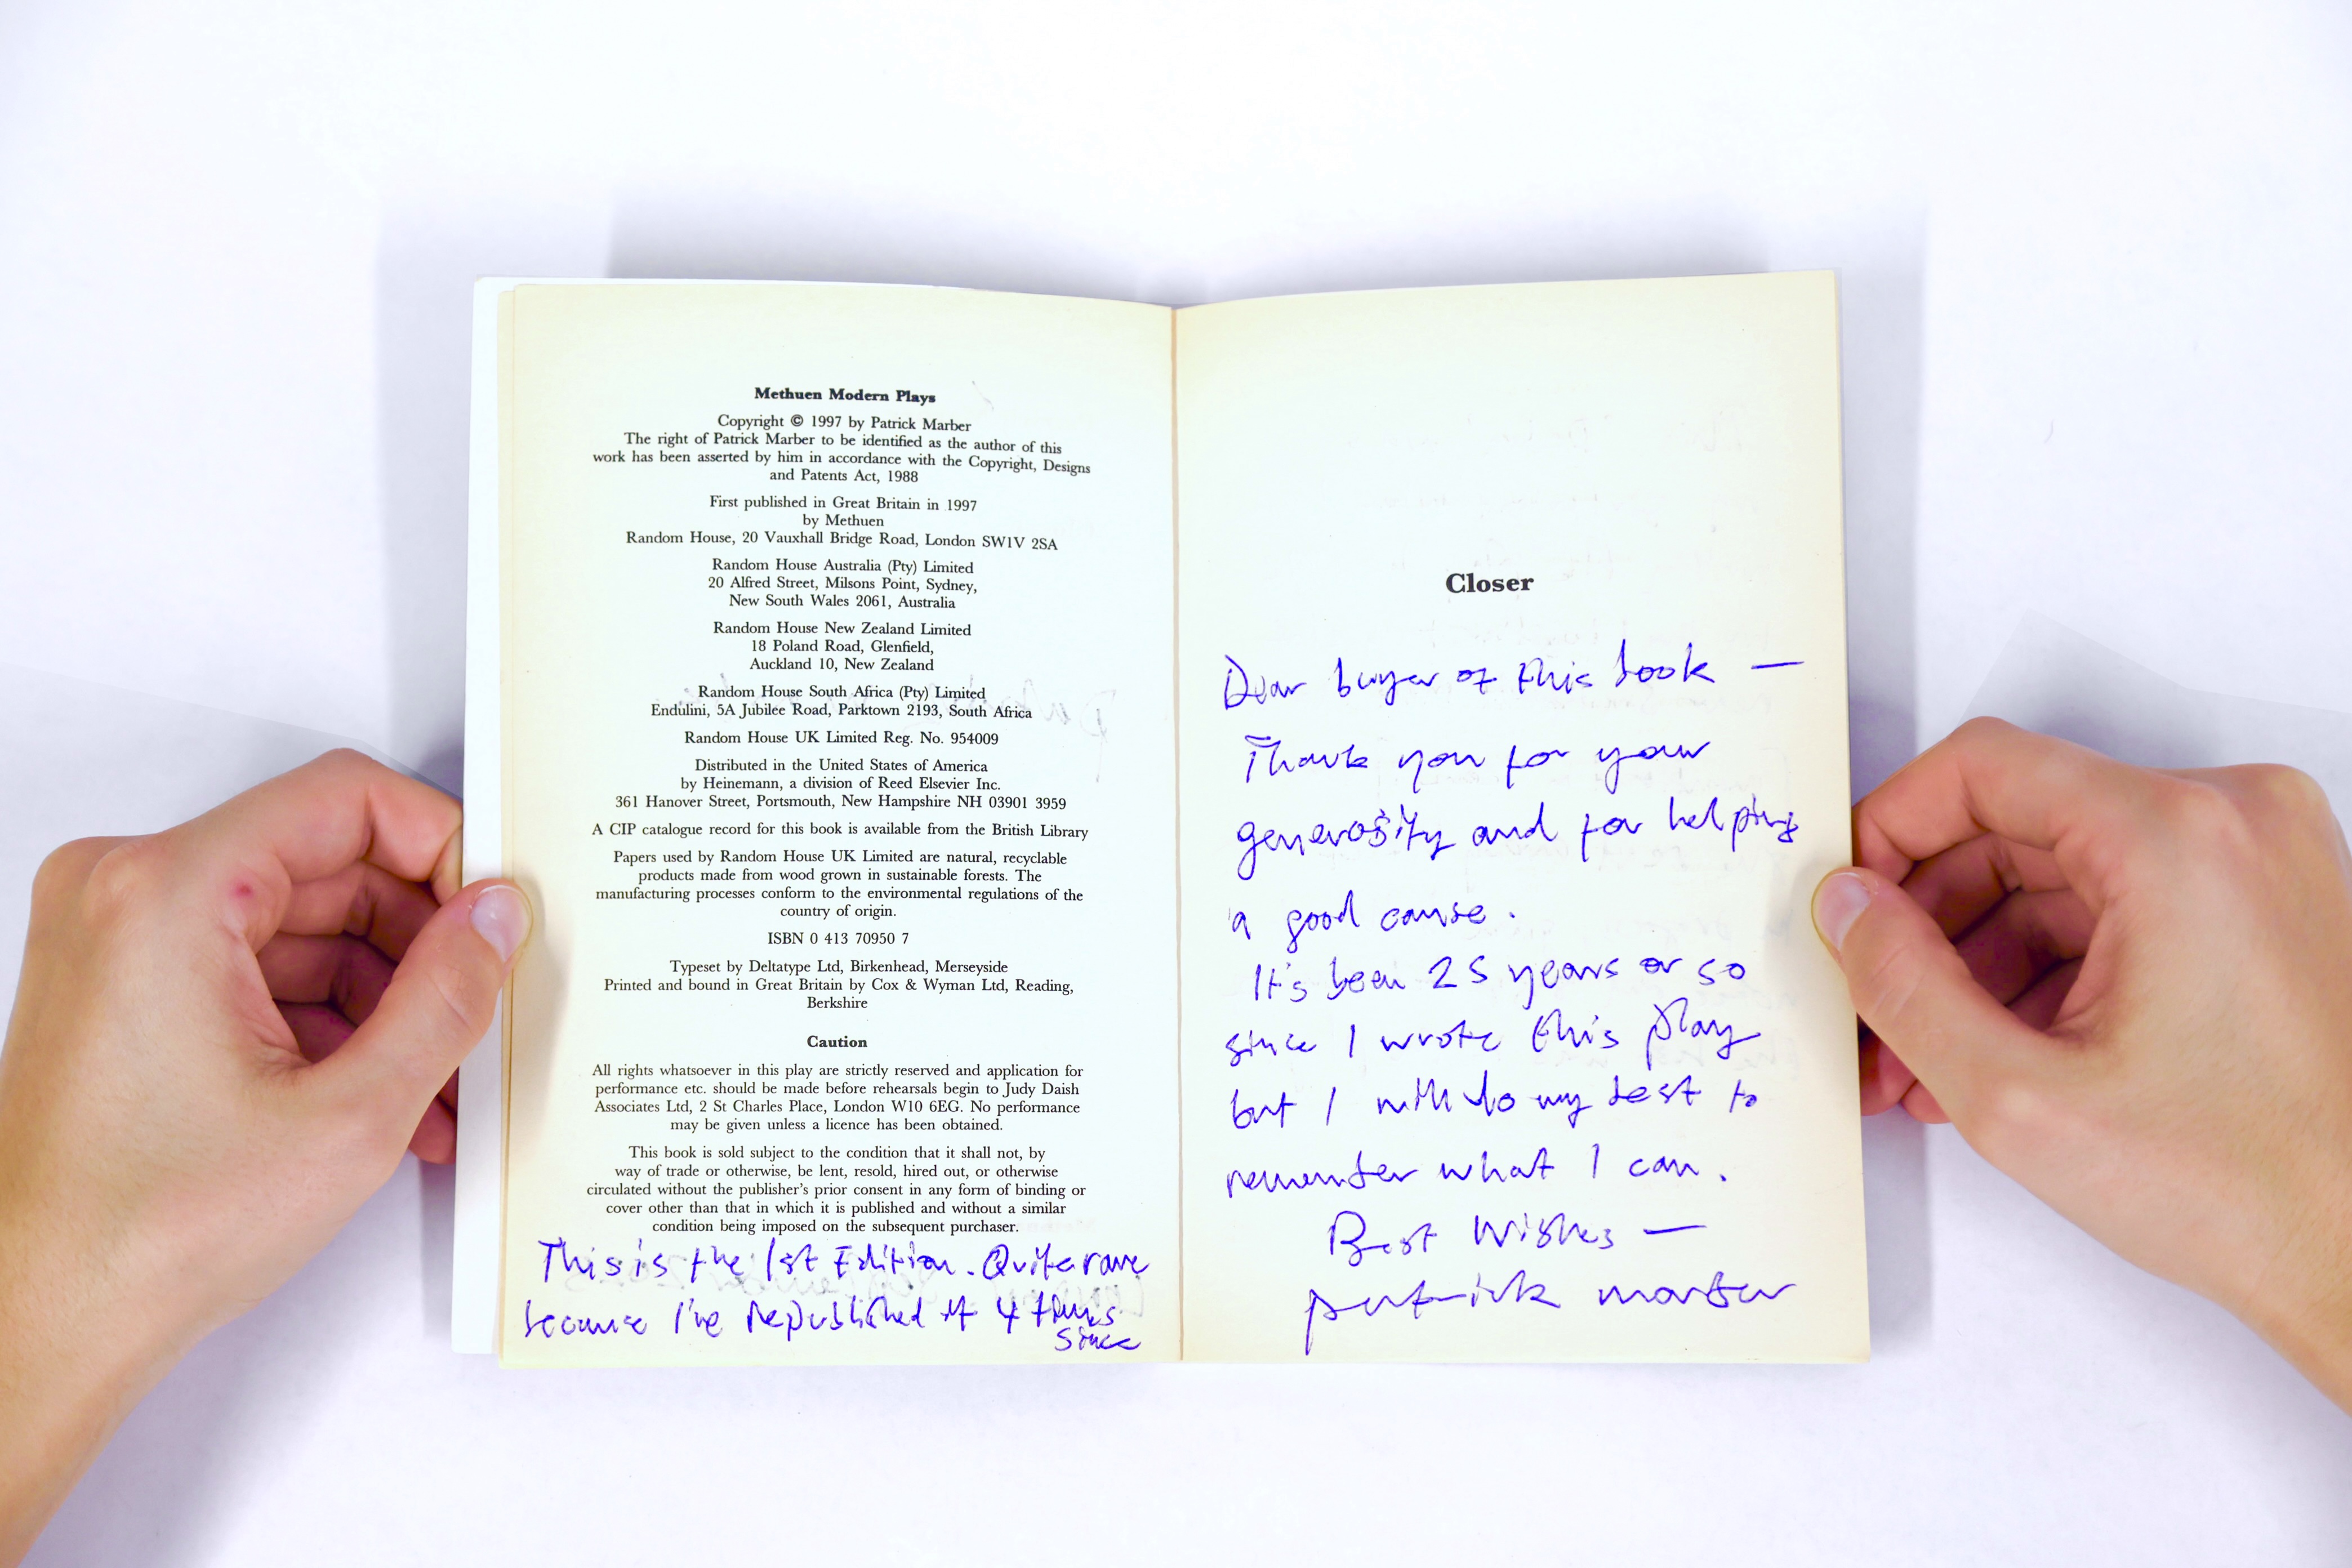 Methuen Modern Plays
Copyright © 1997 by Patrick Marber
The right of Patrick Marber to be identified as the author of this
work has been asserted by him in accordance with the Copyright, Designs
and Patents Act, 1988
First published in Great Britain in 1997
by Methuen
Random House, 20 Vauxhall Bridge Road, London SW1V 2SA
Random House Australia (Pty) Limited
20 Alfred Street, Milsons Point, Sydney,
New South Wales 2061, Australia
Random House New Zealand Limited
18 Poland Road, Glenfield,
Auckland 10, New Zealand
Random House South Africa (Pty) Limited
Endulini, 5A Jubilee Road, Parktown 2193, South Africa
Random House UK Limited Reg. No. 954009
Distributed in the United States of America
by Heinemann, a division of Reed Elsevier Inc.
361 Hanover Street, Portsmouth, New Hampshire NH 03901 3959
A CIP catalogue record for this book is available from the British Library
Papers used by Random House UK Limited are natural, recyclable
products made from wood grown in sustainable forests. The
manufacturing processes conform to the environmental regulations of the
country of origin.
ISBN 0 413 70950 7
Typeset by Deltatype Ltd, Birkenhead, Merseyside
Printed and bound in Great Britain by Cox & Wyman Ltd, Reading,
Berkshire
Caution
All rights whatsoever in this play are strictly reserved and application for
performance etc. should be made before rehearsals begin to Judy Daish
Associates Ltd, 2 St Charles Place, London W10 6EG. No performance
may be given unless a licence has been obtained.
This book is sold subject to the condition that it shall not, by
way of trade or otherwise, be lent, resold, hired out, or otherwise
circulated without the publisher's prior consent in any form of binding or
cover other than that in which it is published and without a similar
condition being imposed on the subsequent purchaser.
This is the 1st Edition. Quite rare
because I've republished it 4 times
since
Closer
Dear buyer of this book —
Thank you for your
generosity and for helping
a good cause.
It's been 25 years or so
since I wrote this play
but I will do my best to
remember what I can.
Best Wishes —
patrick marber